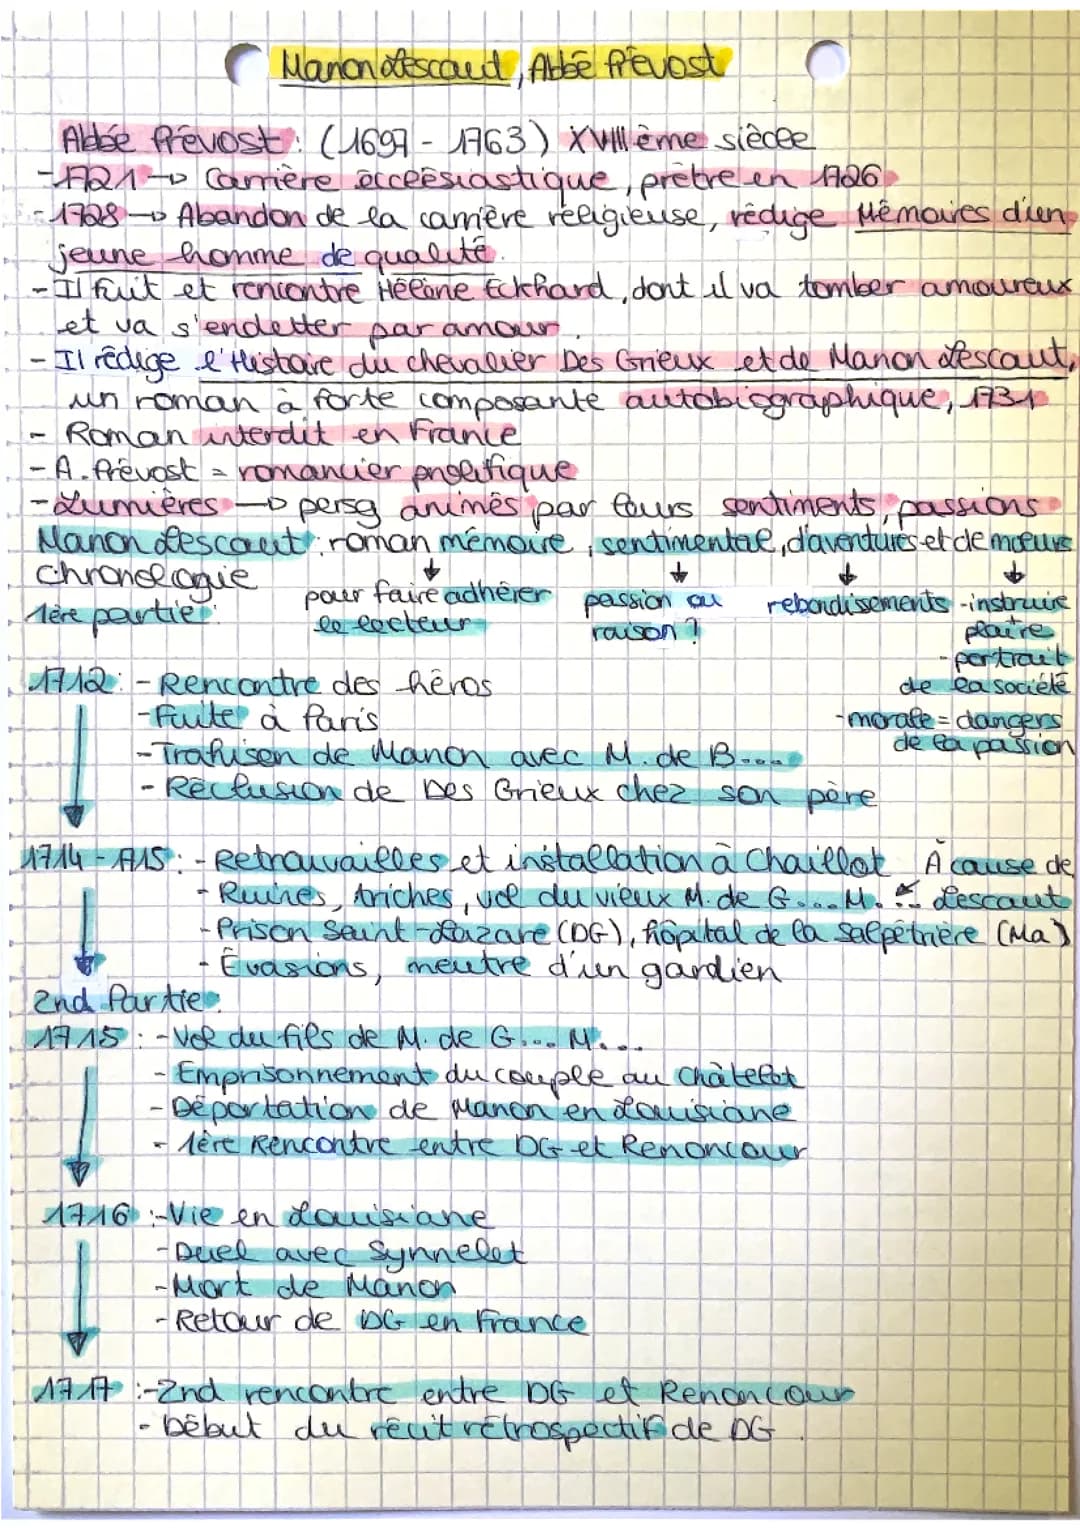 Manon Lescaut, Abbé Prévost
Abbé Prévost : (1697 - 1763) XVIIIème siècle
- 1721 → Carrière écclésiastique, prêtre en 1726
- 1728 → Abandon de la carrière religieuse, rédige Mémoires d'un
jeune homme de qualité.
- Il fuit et rencontre Hélène Eckhard, dont il va tomber amoureux
et va s'endetter par amour.
- Il rédige l'Histoire du chevalier Des Grieux et de Manon Lescaut,
un roman à forte composante autobiographique, 1731
- Roman interdit en France
- A. Prévost = romancier prolifique
- Lumières → persg animés par leurs sentiments, passions
Manon Lescaut : roman mémoire, sentimental, d'aventures et de mœurs
chronologie
pour faire adhérer passion ou rebondissements - instruire
1ère partie :
le lecteur raison ? plaire
- portrait
1712 : - Rencontre des héros de la société
- Fuite à Paris - morale = dangers
- Trahison de Manon avec M. de B.... de la passion
- Réclusion de Des Grieux chez son père
1714 - 1715 : - Retrouvailles et installation à Chaillot À cause de
- Ruines, triches, vol du vieux M. de G... M... Lescaut
- Prison Saint-Lazare (DG), hôpital de la Salpêtrière (Ma)
- Évasions, meutre d'un gardien
2nd Partie :
1715 : - Vol du fils de M. de G... M....
- Emprisonnement du couple au Châtelet
- Déportation de Manon en Louisiane
- 1ère Rencontre entre DG et Renoncour
1716 : - Vie en Louisiane
- Duel avec Synnelet
- Mort de Manon
- Retour de DG en France
1717 : - 2nd rencontre entre DG et Renoncour
- Début du récit rétrospectif de DG.